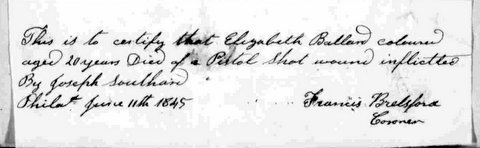 This is to certify that Elizabeth Ballard coloured
aged 20 years Died of a Pistol Shot wound inflictted
By Joseph Southard
Philada June 11th 1845
Francis Brelsford
Coroner